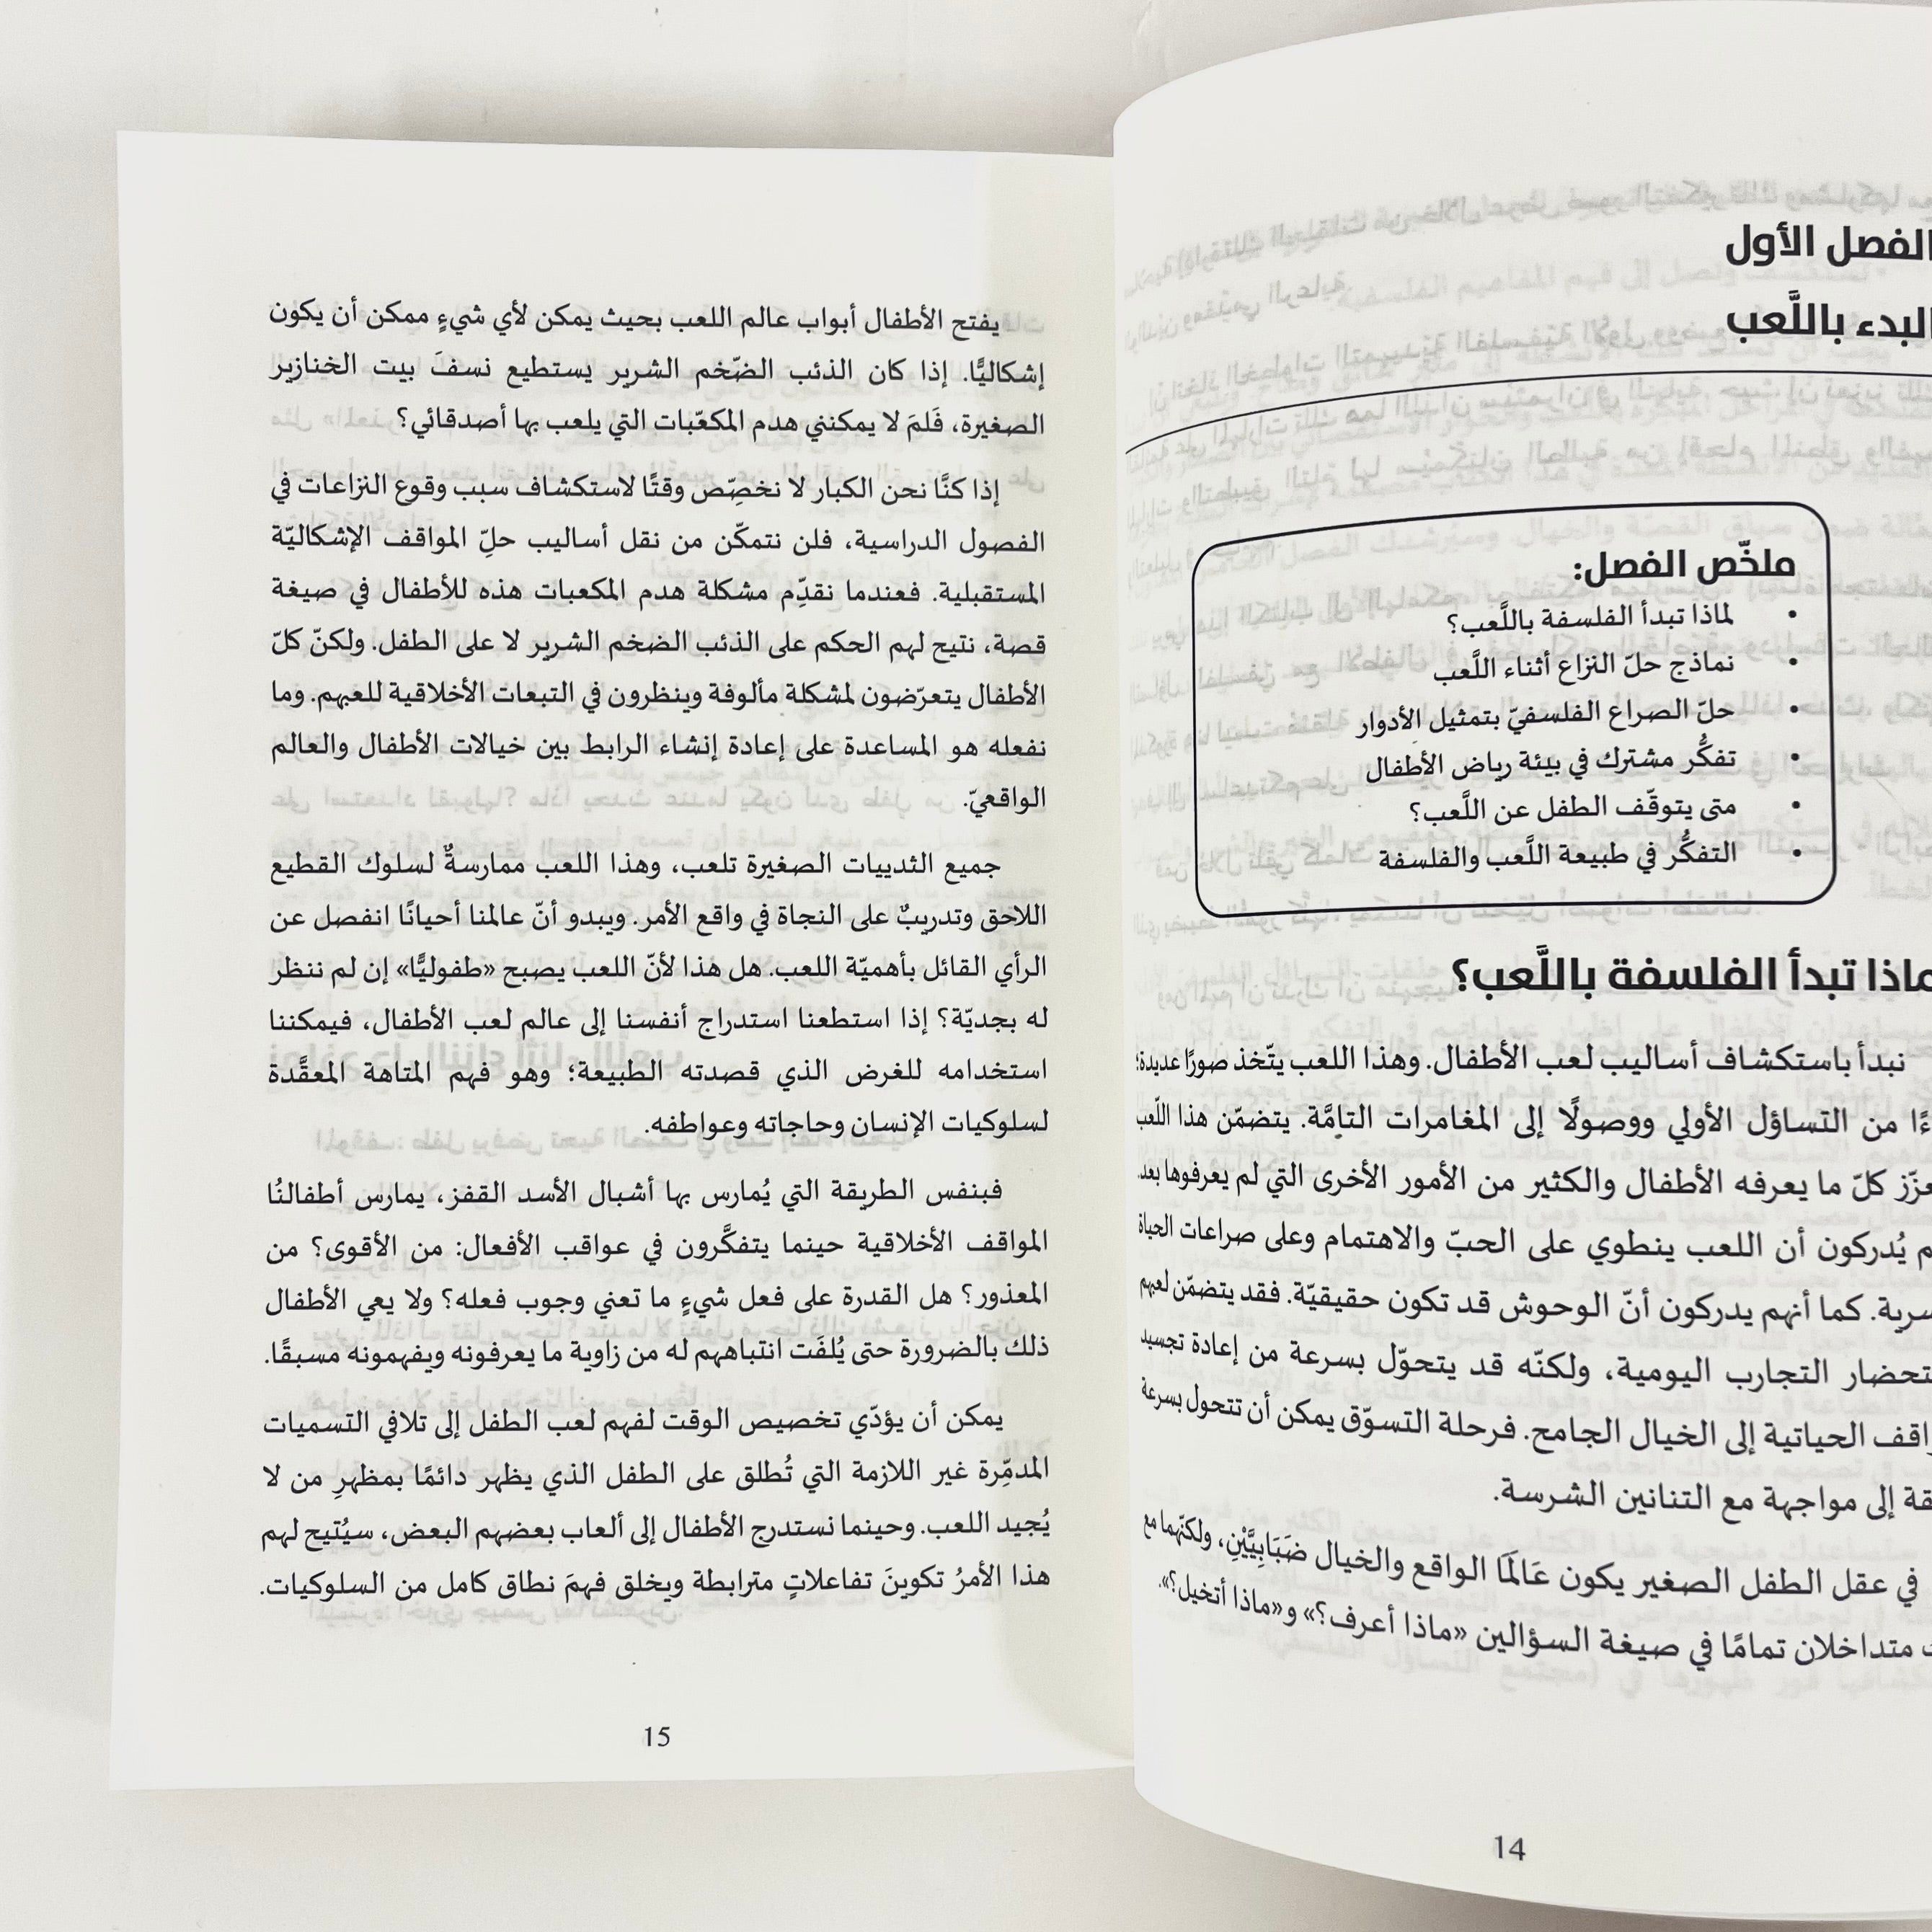 الفصل الأول
البدء باللَّعب
ملخّص الفصل:
• لماذا تبدأ الفلسفة باللَّعب؟
• نماذج حلّ النزاع أثناء اللَّعب
• حلّ الصراع الفلسفيّ بتمثيل الأدوار
• تفكُّر مشترك في بيئة رياض الأطفال
• متى يتوقّف الطفل عن اللَّعب؟
• التفكُّر في طبيعة اللَّعب والفلسفة
تبدأ الفلسفة باللَّعب؟
نبدأ باستكشاف أساليب لعب الأطفال. وهذا اللعب يتّخذ صورًا عديدة؛
من التساؤل الأولي ووصولًا إلى المغامرات التامَّة. يتضمّن هذا اللّعب
كلّ ما يعرفه الأطفال والكثير من الأمور الأخرى التي لم يعرفوها بعد.
يُدركون أن اللعب ينطوي على الحبّ والاهتمام وعلى صراعات الحياة
كما أنهم يدركون أنّ الوحوش قد تكون حقيقيّة. فقد يتضمّن لعبهم
التجارب اليومية، ولكنّه قد يتحوّل بسرعة من إعادة تجسيد
الحياتية إلى الخيال الجامح. فرحلة التسوّق يمكن أن تتحول بسرعة
إلى مواجهة مع التنانين الشرسة.
في عقل الطفل الصغير يكون عَالَمَا الواقع والخيال ضَبَابِيَّيْنِ، ولكنّهما مع
متداخلان تمامًا في صيغة السؤالين «ماذا أعرف؟» و«ماذا أتخيل؟».
14
يفتح الأطفال أبواب عالم اللعب بحيث يمكن لأي شيءٍ ممكن أن يكون
إشكاليًّا. إذا كان الذئب الضّخم الشرير يستطيع نسفَ بيت الخنازير
الصغيرة، فَلمَ لا يمكنني هدم المكعّبات التي يلعب بها أصدقائي؟
إذا كنَّا نحن الكبار لا نخصِّص وقتًا لاستكشاف سبب وقوع النزاعات في
الفصول الدراسية، فلن نتمكّن من نقل أساليب حلِّ المواقف الإشكاليّة
المستقبلية. فعندما نقدِّم مشكلة هدم المكعبات هذه للأطفال في صيغة
قصة، نتيح لهم الحكم على الذئب الضخم الشرير لا على الطفل. ولكنّ كلّ
الأطفال يتعرّضون لمشكلة مألوفة وينظرون في التبعات الأخلاقية للعبهم. وما
نفعله هو المساعدة على إعادة إنشاء الرابط بين خيالات الأطفال والعالم
الواقعيّ.
جميع الثدييات الصغيرة تلعب، وهذا اللعب ممارسةٌ لسلوك القطيع
اللاحق وتدريبٌ على النجاة في واقع الأمر. ويبدو أنّ عالمنا أحيانًا انفصل عن
الرأي القائل بأهميّة اللعب. هل هذا لأنّ اللعب يصبح «طفوليًّا» إن لم ننظر
له بجديّة؟ إذا استطعنا استدراج أنفسنا إلى عالم لعب الأطفال، فيمكننا
استخدامه للغرض الذي قصدته الطبيعة؛ وهو فهم المتاهة المعقَّدة
لسلوكيات الإنسان وحاجاته وعواطفه.
فبنفس الطريقة التي يُمارس بها أشبال الأسد القفز، يمارس أطفالنُا
المواقف الأخلاقية حينما يتفكَّرون في عواقب الأفعال: من الأقوى؟ من
المعذور؟ هل القدرة على فعل شيءٍ ما تعني وجوب فعله؟ ولا يعي الأطفال
ذلك بالضرورة حتى يُلفَت انتباههم له من زاوية ما يعرفونه ويفهمونه مسبقًا.
يمكن أن يؤدّي تخصيص الوقت لفهم لعب الطفل إلى تلافي التسميات
المدمِّرة غير اللازمة التي تُطلق على الطفل الذي يظهر دائمًا بمظهرِ من لا
يُجيد اللعب. وحينما نستدرج الأطفال إلى ألعاب بعضهم البعض، سيُتيح لهم
هذا الأمرُ تكوينَ تفاعلاتٍ مترابطة ويخلق فهمَ نطاق كامل من السلوكيات.
15